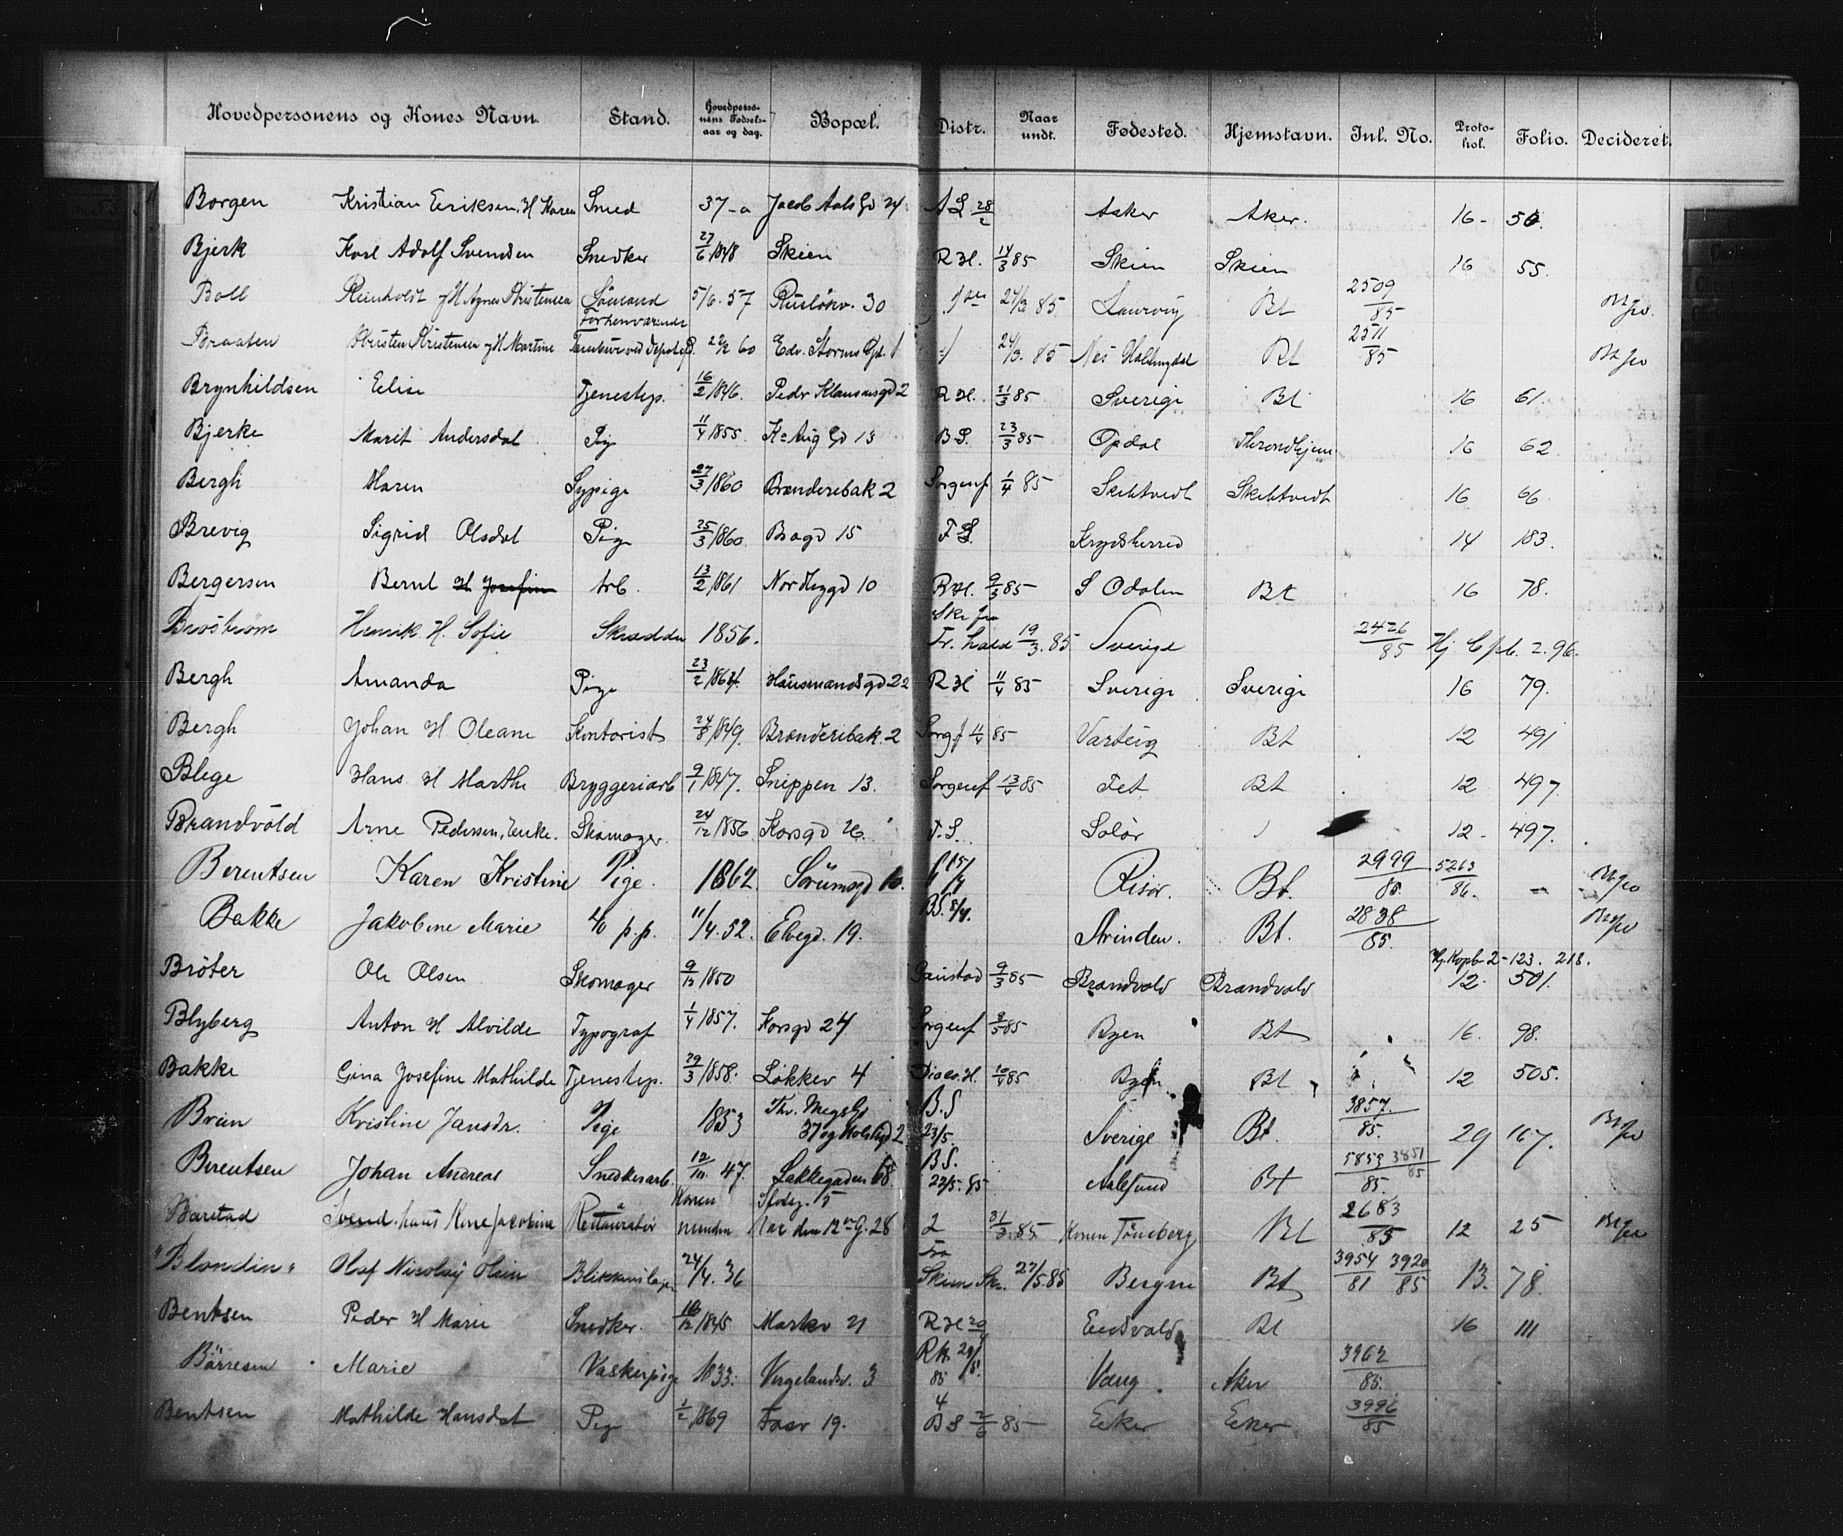 Hovedpersonens og Kones Navn. Stand. Hovedpersonens Fødselsaar og dag. Bopæl. Distr. Naar undt. Fødested. Hjemstavn. Inl. No. Protokol. Folio. Decideret.
Borgen Kristian Eriksen, H Karen Smed 37-a Jacob Aals Gd 24 A L 28/2 Asker Aker. 16- 50.
Bjerk Karl Adolf Svendsen Snedker 27/6 1848 Skien R H. 14/3 85 Skien Skien 16 55.
Boll Reinholdt Agnes Kristensen Sömand 5/6. 57 Rusløkv. 30 24/3 85 Laurvig Bt 2509/85
Braaten Kristensen Martine 60 Edv. Storms Gd. 1 24/3. 85 Nes Hallingdal Bt 2511/85
Brynhildsen Elise Tjenestep. 16/2 1846. Peder Klausensgd 2 R H. 21/3 85 Sverige Bt 16 61.
Bjerke Marit Andersdat Pig 11/4 1855 K Aug Gd 13 B S. 23/3 85 Opdal Throndhjem 16 62
Bergh Maren Sypige 27/3 1860 Brænderibak 2 Sorgenf 1/4 85 Skibtvedt Skibtvedt 16 66
Brevig Sigrid Olsdat Pige 25/3 1860 Bogd 15 F S. Krydsherred 14 183.
Bergersen Bernt H Josefine Arb. 13/2 1861 Nordbygd 10 R H. 9/3 85 S Odalen Bt 16 78.
Broström Henrik H. Sofie Skrædder 1856. Fr. hald 19/3. 85 Sverige 2426/85 Hj. Cpb. 2. 96.
Bergh Amanda Pige 23/2 1864. Hausmandsgd 22 R H 11/4 85 Sverige Sverige 16 79.
Bergh Johan H Oleane Kontorist 24/8 1849. Brænderibak. 2 Sorgf 11/4 85 Varteig Bt 12 491
Blege Hans H Marthe Bryggeriarb 9/1 1847. Snippen 13. Sorgenf 13/4 85 Fet Bt 12 497.
Brandvold Arne Pedersen, Enke. Skomager. 24/12 1856 Korsgd 26 F. S. Solör 12- 497.
Berentsen Karen Kristine Pige. 1862. Sørumsgd 10. 15/4 Risör. Bt. 2999/85. 5263/86. –
Bakke Jakobine Marie p. p. 11/4. 52. Elvegd. 19. B S. 8/4. Strinden. Bt. 2838/85.
Hj. Kopb 2-123. 218.
Bröter Ole Olsen Skomager 9/12 1850 Gaustad 9/3 85 Brandvold Brandvold 12. 501.
Blyberg Anton H Alvilde Typograf 1/4 1857. Korsgd 24 Sorgenf 8/5 85 Byen Bt 16. 98.
Bakke Gina Josefine Mathilde Tjenestep. 29/3 1858. Løkkev 4 Diaco. H. 10/4 85 Byen Bt 12 505.
Brun Kristine Jansdr. Pige 1853 Thv. Meys Gd 37 og Holstgd 2 B. S 23/5. Sverige Bt. 3857./85. 29 167.
Berentsen Johan Andreas Snedkerarb. 12/10. 47. Lakkegaden 68. B S. 22/5. 85 Aalesund Bt 5853 3851/85
Barstad Svend. hans Kone Jacobine Restauratør Konen 2 31/3. 85 Konen Tönsberg Bt 2683/85 12 25
"Blondin" Olaf Nicolay Olsen 24/4. 36 fra Skien Sk. 27/5. 85 Bergen Bt 3954/81 3920/85 13. 78.
Bentsen Peder H Marie Snedker. 1845 Markv 21 R H 20/4 Eidsvold Bt 16 111
Börresen Marie Vaskepige 1833. Vergelandsv. 3 R H. 29/5. 85 Vang Aker 3962/85.
Bentsen Mathilde Hansdat Pig 1/2 1869 Fossv 19. 4 B S 2/6 85 Eeker Eeker 3996/85